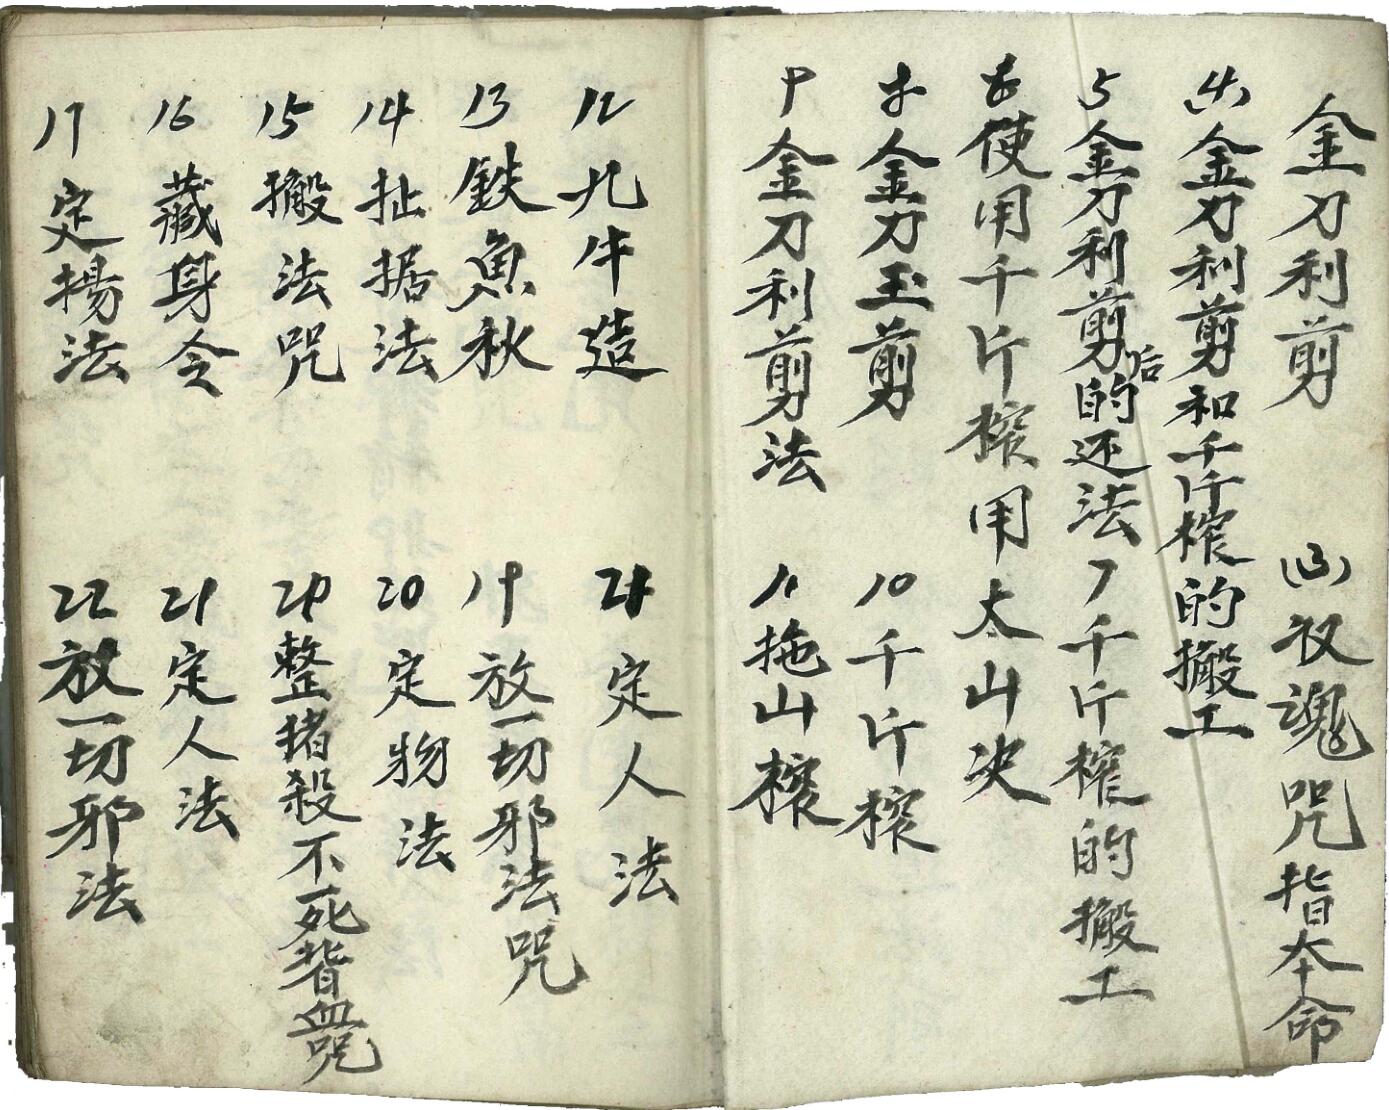 金刀利剪
(3)收魂咒指本命
(4)金刀利剪和千斤榨的搬工
5金刀利剪后的还法
7千斤榨的搬工
6使用千斤榨用太山决
8金刀玉剪
10千斤榨
9金刀利剪法
11拖山榨
12九牛造
21定人法
13鉄魚秋
19放一切邪法咒
14扯据法
20定物法
15搬法咒
20整猪殺不死背血咒
16藏身令
21定人法
17定揚法
22放一切邪法